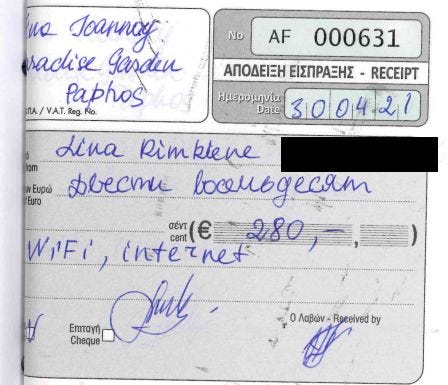 Ioannoy
Paradise Garden
Paphos
Π.Α. / V.A.T. Reg. No.
No AF 000631
ΑΠΟΔΕΙΞΗ ΕΙΣΠΡΑΞΗΣ - RECEIPT
Ημερομηνία
Date 300421
from Lina Rimkiene
Ευρώ двести восемьдесят
Euro
σέντ
cent (€ 280,- , )
WiFi, internet
Επιταγή
Cheque
Ο Λαβών - Received by